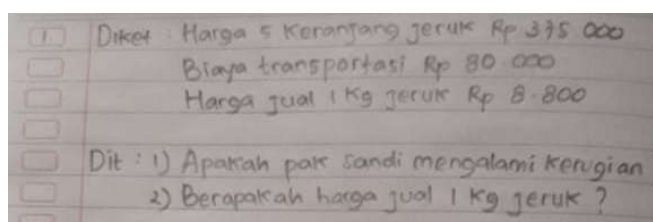 1 Diket : Harga 5 Keranjang jeruk Rp 375 000
Biaya transportasi Rp 80 000
Harga jual 1 Kg jeruk Rp 8.800
Dit : 1) Apakah pak Sandi mengalami kerugian
2) Berapakah harga jual 1 Kg jeruk ?